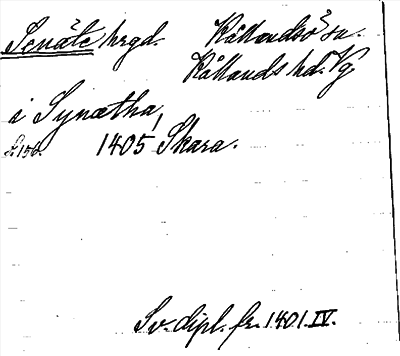 Senäte hrgd. Kållandsö sn.
Kållands hd. Vg
i Synætha,
s. 156. 1405 Skara.
Sv. dipl. fr. 1401. IV.